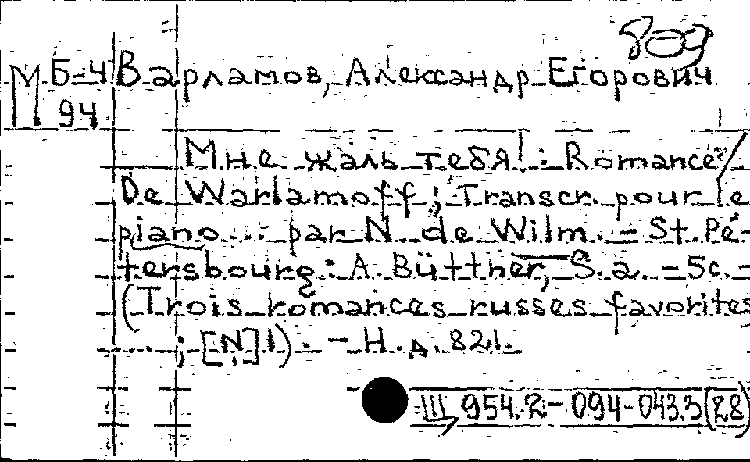 809
М Б-4 Варламов, Александр Егорович
94
Мне жаль тебя! : Romance /
De Warlamoff ; Transcr. pour le
piano ... par N. de Wilm. - St. Pé-
tersbourg : A. Büttner, S. a. - 5c. -
(Trois romances russes favorites
... ; [N] 1). - Н. д. 821.
III 954.2 - 094-043.3(28)